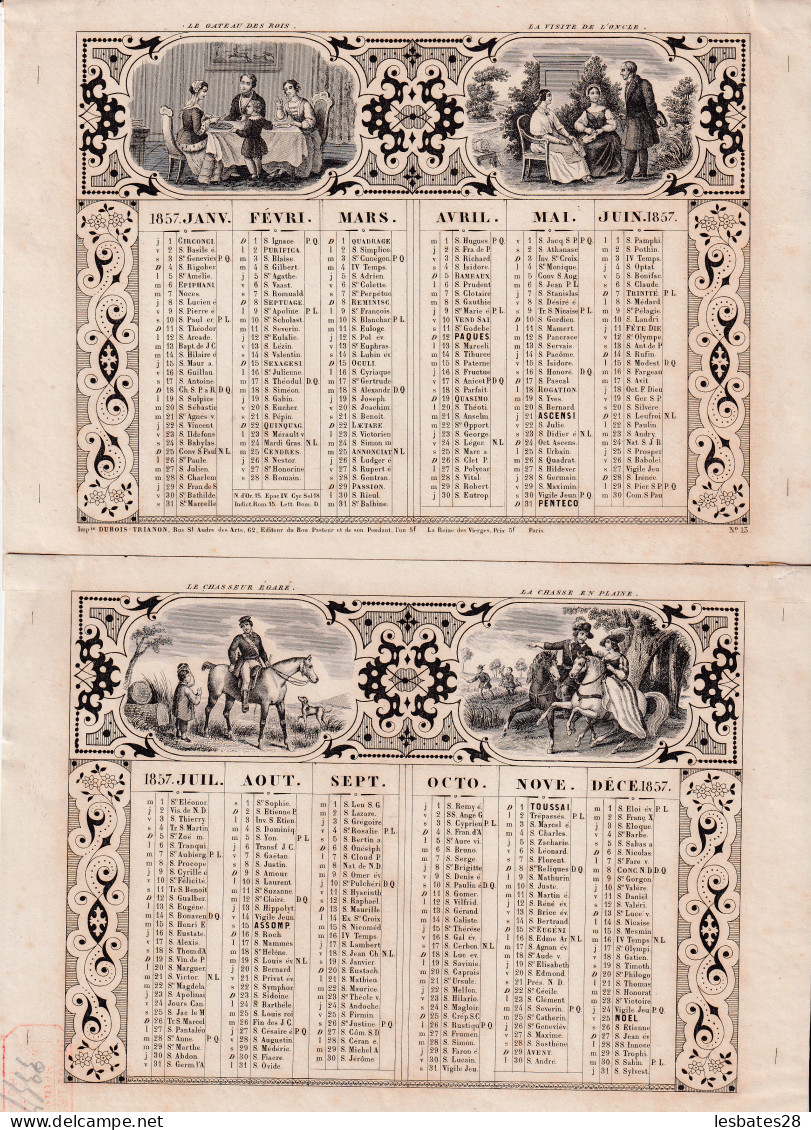 LE GATEAU DES ROIS.
LA VISITE DE L'ONCLE.
1857. JANV.
FÉVRI.
MARS.
AVRIL.
MAI.
JUIN. 1857.
j 1 CIRCONCI.
v 2 S. Basile é.
s 3 Ste Geneviev P.Q.
D 4 S. Rigober
l 5 Ste Amélie.
m 6 EPIPHANI
m 7 Noces.
j 8 S. Lucien é
v 9 S. Pierre é
s 10 S. Paul er. P.L.
D 11 S. Théodor
l 12 S. Arcade.
m 13 Bapt. de J C
m 14 S. Hilaire é
j 15 S. Maur a.
v 16 S. Guillau
s 17 S. Antoine.
D 18 Ch. S. P à R D.Q.
l 19 S. Sulpice
m 20 S. Sébastie
m 21 Ste Agnès v.
j 22 S. Vincent
v 23 S. Ildefons
s 24 S. Babylas
D 25 Conv S Paul N.L.
l 26 Ste Paule.
m 27 S. Julien.
m 28 S. Charlem
j 29 S. Fran. de S
v 30 Ste Bathilde.
s 31 Ste Marcelle
D 1 S. Ignace P.Q.
l 2 PURIFICA.
m 3 S. Blaise.
m 4 S. Gilbert.
j 5 Ste Agathe.
v 6 S. Vaast.
s 7 S. Romuald
D 8 SEPTUAGE
l 9 Ste Apoline. P.L.
m 10 Ste Scholast.
m 11 S. Severin.
j 12 Ste Eulalie.
v 13 S. Lézin.
s 14 S. Valentin.
D 15 SEXAGESI
l 16 Ste Julienne.
m 17 S. Théodul. D.Q.
m 18 S. Siméon.
j 19 S. Gabin.
v 20 S. Eucher
s 21 S. Pépin.
D 22 QUINQUAG.
l 23 S. Mérault v
m 24 Mardi Gras. N.L.
m 25 CENDRES.
j 26 S. Nestor.
v 27 Ste Honorine
s 28 S. Romain.
N. d'Or. 15. Epac IV. Cyc Sol 18
Indict. Rom 15. Lett. Dom. D
D 1 QUADRAGE
l 2 S. Simplice.
m 3 Ste Cunegon. P.Q.
m 4 IV Temps.
j 5 S. Adrien.
v 6 Ste Colette.
s 7 Ste Perpétue
D 8 REMINISC.
l 9 Ste François.
m 10 S. Blanchar P.L.
m 11 S. Euloge.
j 12 S. Pol év.
v 13 Ste Euphras.
s 14 S. Lubin év.
D 15 OCULI.
l 16 S. Cyriaque
m 17 Ste Gertrude
m 18 S. Alexandr. D.Q.
j 19 S. Joseph.
v 20 S. Joachim.
s 21 S. Benoît.
D 22 LÆTARE.
l 23 S. Victorien
m 24 S. Simon m
m 25 ANNONCIAT N.L.
j 26 S. Ludger é
v 27 S. Rupert é
s 28 S. Gontran.
D 29 PASSION.
l 30 S. Rieul.
m 31 Ste Balbine.
m 1 S. Hugues. P.Q.
j 2 S. Fra de P.
v 3 S. Richard
s 4 S. Isidore.
D 5 RAMEAUX
l 6 S. Prudent
m 7 S. Clotaire
m 8 S. Gauthie
j 9 Ste Marie é P.L.
v 10 VEND SAI.
s 11 S. Godebe
D 12 PAQUES.
l 13 S. Marceli
m 14 S. Tiburce
m 15 S. Paterne
j 16 S. Fructue
v 17 S. Anicet P D.Q.
s 18 S. Parfait.
D 19 QUASIMO
l 20 S. Théoti.
m 21 S. Anselm
m 22 Ste Opport.
j 23 S. George.
v 24 S. Léger. N.L.
s 25 S. Marc a
D 26 S. Clet P.
l 27 S. Polycar
m 28 S. Vital.
m 29 S. Robert
j 30 S. Eutrop.
v 1 S. Jacq S. P. P.Q.
s 2 S. Athanase
D 3 Inv. Ste Croix.
l 4 Ste Monique.
m 5 Conv S Aug.
m 6 S. Jean P. L.
j 7 S. Stanislas
v 8 S. Désiré é
s 9 Tr. S Nicaise P.L.
D 10 S. Gordien
l 11 S. Mamert.
m 12 S. Pancrace
m 13 S. Servais
j 14 S. Pacôme.
v 15 S. Isidore.
s 16 S. Honoré. D.Q.
D 17 S. Pascal
l 18 ROGATION.
m 19 S. Yves.
m 20 S. Bernard
j 21 ASCENSI
v 22 S. Julie
s 23 S. Didier é N.L.
D 24 Oct. Ascens.
l 25 S. Urbain.
m 26 S. Quadrat
m 27 S. Hildever.
j 28 S. Germain
v 29 S. Maximin
s 30 Vigile Jeun P.Q.
D 31 PENTECO
l 1 S. Pamphi.
m 2 S. Pothin.
m 3 IV Temps
j 4 S. Optat.
v 5 S. Bonifac.
s 6 S. Claude.
D 7 TRINITÉ P.L.
l 8 S. Médard
m 9 Ste Pélagie.
m 10 S. Landri
j 11 FÊTE DIE
v 12 Ste Olympe.
s 13 S. Ant. de P
D 14 S. Rufin
l 15 S. Modest. D.Q.
m 16 S. Fargeau
m 17 S. Avit
j 18 Oct F. Dieu
v 19 S. Ger S.P.
s 20 S. Silvère
D 21 S. Leufroi N.L.
l 22 S. Paulin
m 23 S. Andry
m 24 Nat. S J B.
j 25 S. Prosper
v 26 S. Babolei
s 27 Vigile Jeu
D 28 S. Irénée.
l 29 S. Pier S.P. P.Q.
m 30 Com. S Pau
Imp.ie DUBOIS-TRIANON, Rue St Andre des Arts, 62, Editeur du Bon Pasteur et de son Pendant, l'un 5f La Reine des Vierges, Prix 5f Paris. No 13
LE CHASSEUR ÉGARÉ.
LA CHASSE EN PLAINE.
1857. JUIL.
AOUT.
SEPT.
OCTO.
NOVE.
DÉCE. 1857.
m 1 Ste Eléonor.
j 2 Vis. de N.D.
v 3 S. Thierry.
s 4 Tr. S Martin
D 5 Ste Zoé m.
l 6 S. Tranqui.
m 7 Ste Aubierg. P.L.
m 8 S. Procope
j 9 S. Cyrille é
v 10 Ste Félicité.
s 11 Tr. S Benoît
D 12 S. Gualber.
l 13 S. Eugène.
m 14 S. Bonaven D.Q.
m 15 S. Henri E
j 16 S. Eustate.
v 17 S. Alexis.
s 18 S. Thom d'A
D 19 S. Vin. de P.
l 20 S. Marguer.
m 21 S. Victor. N.L.
m 22 S. Magdela.
j 23 S. Apolinai
v 24 Jours Can.
s 25 S. Jac le M
D 26 Tr. S Marcel
l 27 S. Pantaléo
m 28 Ste Anne. P.Q.
m 29 Ste Marthe.
j 30 S. Abdon.
v 31 S. Germ. l'A
s 1 S. Sophie.
D 2 S. Etienne P.
l 3 Inv. S Etien.
m 4 S. Dominiq
m 5 S. Yon. P.L.
j 6 Transf. J C.
v 7 S. Gaëtan.
s 8 S. Justin.
D 9 S. Amour
l 10 S. Laurent
m 11 Ste Suzanne
m 12 Ste Claire. D.Q.
j 13 S. Hippolyt.
v 14 Vigile Jeun.
s 15 ASSOMP.
D 16 S. Roch.
l 17 S. Mammès
m 18 Ste Hélène.
m 19 S. Louis év N.L.
j 20 S. Bernard
v 21 S. Privat év.
s 22 S. Symphor
D 23 S. Sidoine
l 24 S. Barthéle.
m 25 S. Louis roi
m 26 Fin des J C.
j 27 S. Césaire é P.Q.
v 28 S. Augustin
s 29 S. Médéric.
D 30 S. Fiacre.
l 31 S. Ovide.
m 1 S. Leu S. G
m 2 S. Lazare.
j 3 S. Gregoire
v 4 Ste Rosalie. P.L.
s 5 S. Bertin a
D 6 S. Onésiph
l 7 S. Cloud P.
m 8 Nat de N.D.
m 9 S. Omer év.
j 10 Ste Pulchéri D.Q.
v 11 S. Hyacinti
s 12 S. Raphael.
D 13 S. Maurille
l 14 Ex Ste Croix
m 15 S. Nicoméd
m 16 IV Temps.
j 17 S. Lambert
v 18 S. Jean Ch N.L.
s 19 S. Janvier.
D 20 S. Eustach.
l 21 S. Mathieu
m 22 S. Maurice.
m 23 Ste Thècle v.
j 24 S. Andoche.
v 25 S. Firmin.
s 26 Ste Justine. P.Q.
D 27 S. Côm. S.D
l 28 S. Céran é.
m 29 S. Michel A
m 30 S. Jérôme.
j 1 S. Remy é
v 2 SS. Ange G
s 3 S. Cyprien P.L.
D 4 S. Fran. d'A
l 5 Ste Aure vi.
m 6 S. Bruno
m 7 S. Serge.
j 8 Ste Brigitte
v 9 S. Denis é
s 10 S. Paulin é D.Q.
D 11 S. Gomer
l 12 S. Vilfrid.
m 13 S. Gérand
m 14 S. Caliste
j 15 Ste Thérèse
v 16 S. Gal év.
s 17 S. Cerbon. N.L.
D 18 S. Luc ev.
l 19 S. Savinie.
m 20 S. Caprais
m 21 Ste Ursule.
j 22 S. Mellon.
v 23 S. Hilario.
s 24 S. Magloir
D 25 S. Crép. S.C
l 26 S. Rustiqu P.Q.
m 27 S. Frumen.
m 28 S. Simon.
j 29 S. Faron é.
v 30 S. Lucain.
s 31 Vigile Jeu.
D 1 TOUSSAI
l 2 Trépassés. P.L.
m 3 S. Marcel é
m 4 S. Charles.
j 5 S. Zacharie.
v 6 S. Léonard.
s 7 S. Florent.
D 8 Stes Reliques D.Q.
l 9 S. Mathurin
m 10 S. Juste.
m 11 S. Martin é
j 12 S. René év
v 13 S. Brice év.
s 14 S. Bertrand
D 15 S. EUGÉNI
l 16 S. Edme Ar N.L.
m 17 S. Agnan év
m 18 Ste Aude v.
j 19 Ste Elisabeth
v 20 S. Edmond.
s 21 Prés. N. D.
D 22 Ste Cécile.
l 23 S. Clément
m 24 S. Severin. P.Q.
m 25 Ste Catherin.
j 26 Ste Geneviév.
v 27 S. Maxime.
s 28 S. Sosthène
D 29 AVENT.
l 30 S. André.
m 1 S. Eloi év P.L.
m 2 S. Franç X
j 3 S. Eloque
v 4 Ste Barbe.
s 5 S. Sabas a
D 6 S. Nicolas
l 7 Ste Fare v.
m 8 CONC N.D D.Q.
m 9 Ste Gorgon
j 10 Ste Valère.
v 11 S. Daniel
s 12 S. Valéri.
D 13 Ste Luce v.
l 14 S. Nicaise
m 15 S. Mesmin
m 16 IV Temps N.L.
j 17 Ste Olympi
v 18 S. Gatien.
s 19 S. Timoth
D 20 S. Philogo
l 21 S. Thomas
m 22 S. Honorat
m 23 Ste Victoire
j 24 Vigile Jeu P.Q.
v 25 NOEL
s 26 S. Etienne
D 27 S. Jean év
l 28 SS. Innoce
m 29 S. Trophi.
m 30 S. Sabin. P.L.
j 31 S. Sylvest.
lesbates28